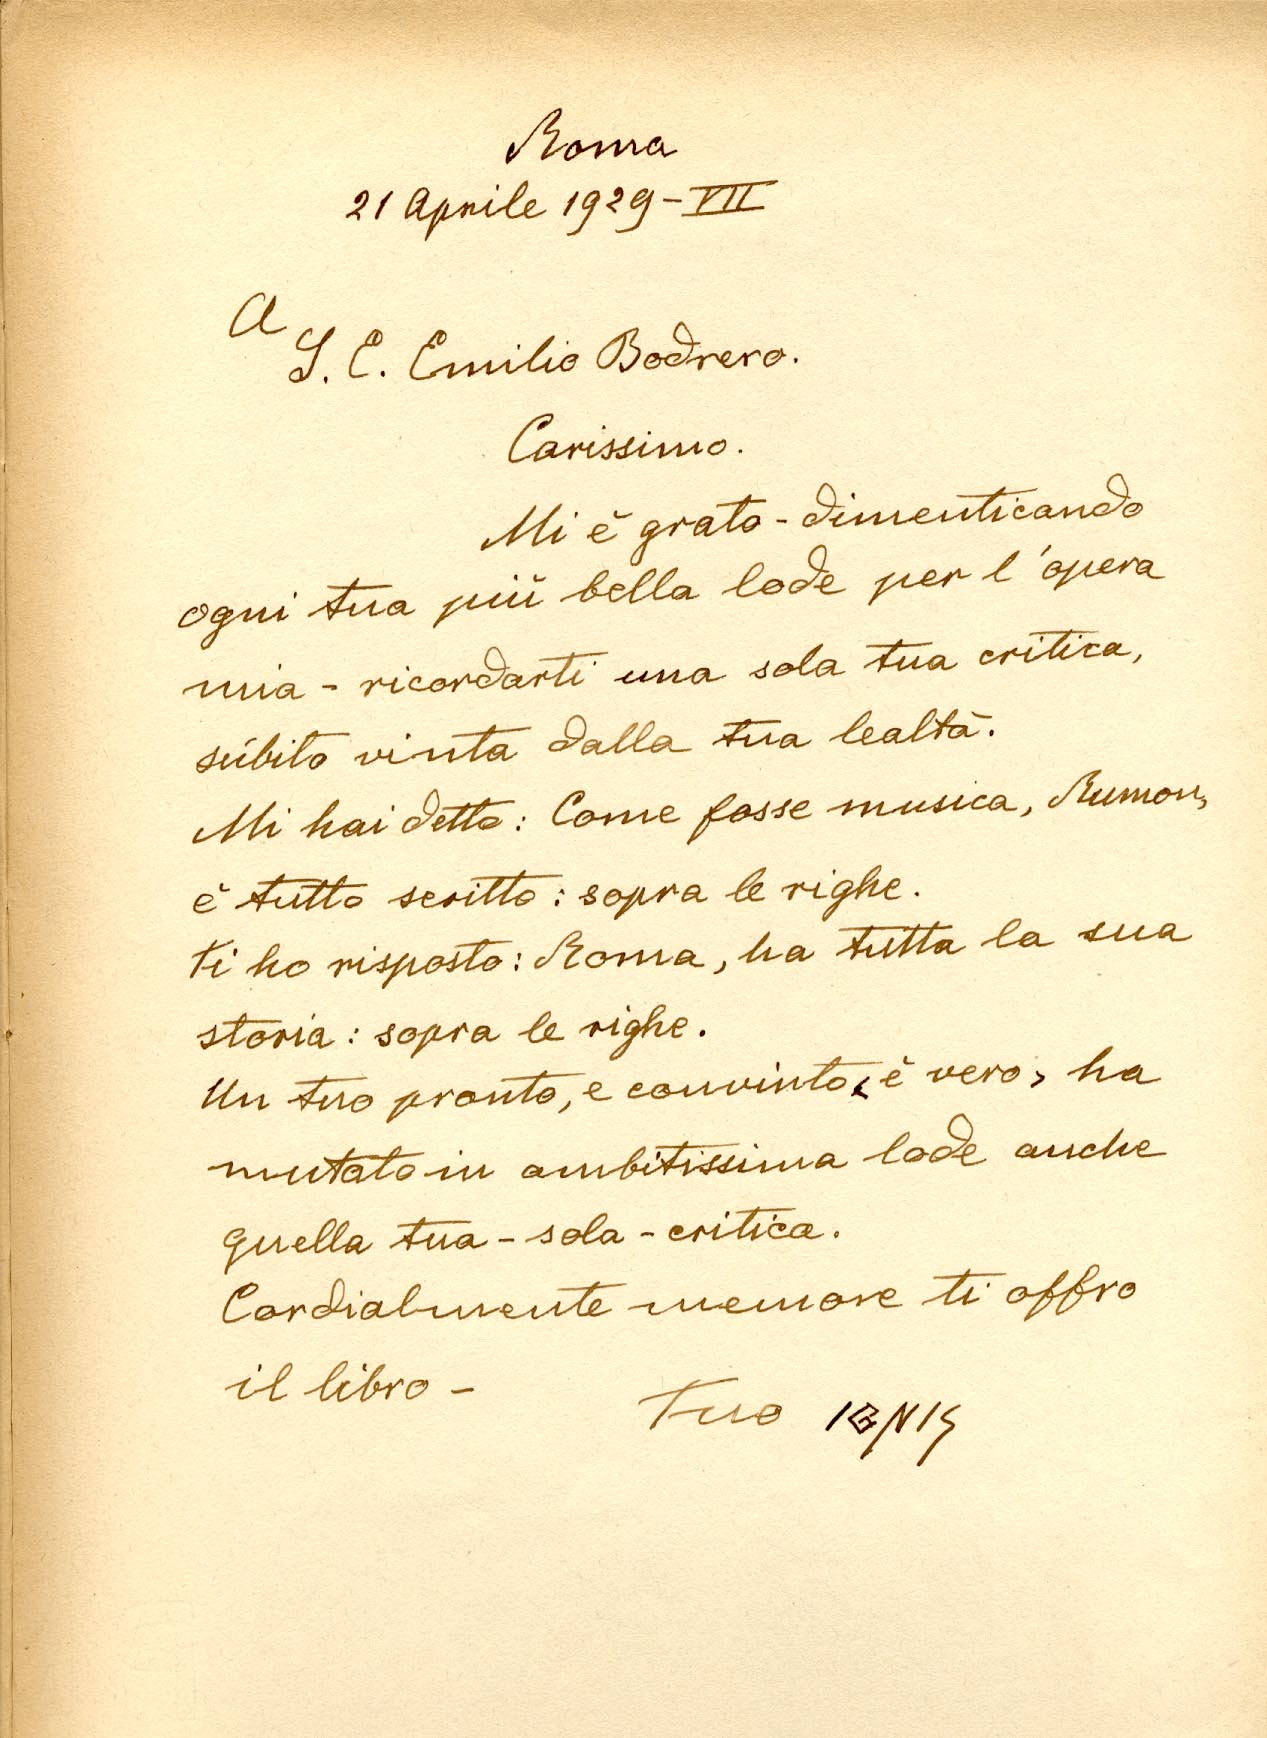 Roma
21 Aprile 1929-VII
A
S. E. Emilio Bodrero.
Carissimo.
Mi è grato - dimenticando
ogni tua più bella lode per l'opera
mia - ricordarti una sola tua critica,
súbito vinta dalla tua lealtà.
Mi hai detto: Come fosse musica, Rumon,
è tutto scritto: sopra le righe.
Ti ho risposto: Roma, ha tutta la sua
storia: sopra le righe.
Un tuo pronto, e convinto < è vero > ha
mutato in ambitissima lode anche
quella tua - sola - critica.
Cordialmente memore ti offro
il libro -
Tuo IGNIS